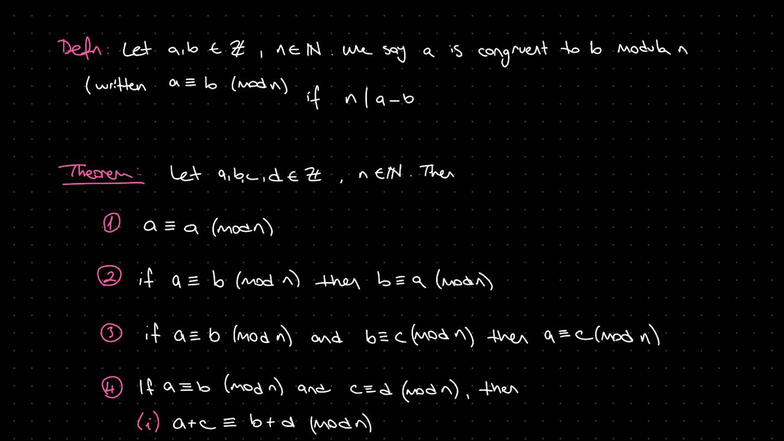 Defn: Let a,b ∈ ℤ, n ∈ ℕ. We say a is congruent to b modula n
(written a ≡ b (mod n) if n | a-b
Theorem: Let a,b,c,d ∈ ℤ, n ∈ ℕ. Then
① a ≡ a (mod n)
② if a ≡ b (mod n) then b ≡ a (mod n)
③ if a ≡ b (mod n) and b ≡ c (mod n) then a ≡ c (mod n)
④ If a ≡ b (mod n) and c ≡ d (mod n), then
(i) a+c ≡ b+d (mod n)